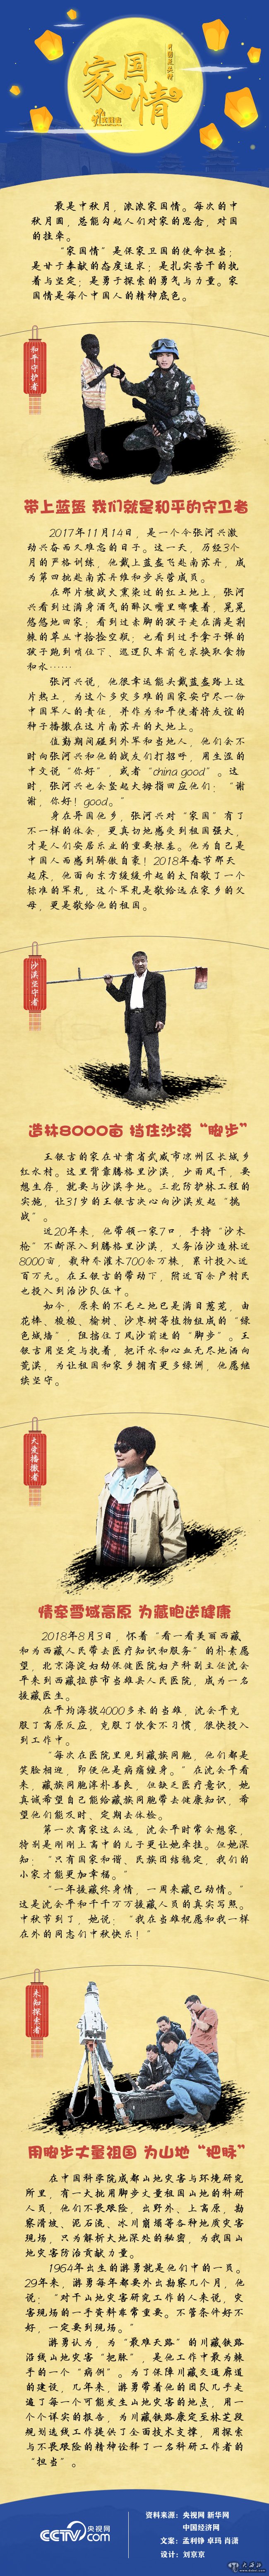 家国情
月圆是故乡
最是中秋月，浓浓家国情。每次的中
秋月圆，总能勾起人们对家的思念，对国
的挂牵。
“家国情”是保家卫国的使命担当；
是甘于奉献的态度追求；是扎实苦干的执
着与坚定；是勇于探索的勇气与力量。家
国情是每个中国人的精神底色。
和平守护者
带上蓝盔 我们就是和平的守卫者
2017年11月14日，是一个令张河兴激
动兴奋而又难忘的日子。这一天，历经3个
月的严格训练，他戴上蓝盔飞赴南苏丹，成
为第四批赴南苏丹维和步兵营成员。
在那片被战火熏染过的红土地上，张河
兴看到过满身酒气的醉汉嘴里嘟囔着，晃晃
悠悠地回家；看到过赤脚的孩子走在满是荆
棘的草丛中捡捡空瓶；也看到过手拿子弹的
孩子跑到哨位下、巡逻队车前乞求换取食物
和水……
张河兴说，他很幸运能头戴蓝盔踏上这
片热土，为这个多灾多难的国家安宁尽一份
中国军人的责任，并作为和平使者将友谊的
种子播撒在这片南苏丹的大地上。
值勤期间碰到外军和当地人，他们会不
时向张河兴和他的战友们打招呼，用生涩的
中文说“你好”，或者“china good”。这
时，张河兴也会竖起大拇指回应他们：“谢
谢，你好！good。”
身在异国他乡，张河兴对“家国”有了
不一样的体会，更真切地感受到祖国强大，
才是人们安居乐业的重要根基。他为自己是
中国人而感到骄傲自豪！2018年春节那天
起床，他面向东方缓缓升起的太阳敬了一个
标准的军礼，这个军礼是敬给远在家乡的父
母，更是敬给他的祖国。
沙漠坚守者
造林8000亩 挡住沙漠“脚步”
王银吉的家在甘肃省武威市凉州区长城乡
红水村。这里背靠腾格里沙漠，少雨风干，要
想生存，就要与沙漠争地。三北防护林工程的
实施，让31岁的王银吉决心向沙漠发起“挑
战”。
近20年来，他带领一家7口，手持“沙木
枪”不断深入到腾格里沙漠，义务治沙造林近
8000亩，栽种乔灌木700余万株，累计投入近
百万元。在王银吉的带动下，附近百余户村民
也投入到治沙队伍中。
如今，原来的不毛之地已是满目葱茏，由
花棒、梭梭、榆树、沙枣树等植物组成的“绿
色城墙”，阻挡住了风沙前进的“脚步”。王
银吉用坚定与执着，把汗水和心血无尽地洒向
荒漠，为让祖国和家乡拥有更多绿洲，他愿继
续坚守。
大爱播撒者
情牵雪域高原 为藏胞送健康
2018年8月3日，怀着“看一看美丽西藏
和为西藏人民带去医疗知识和服务”的朴素愿
望，北京海淀妇幼保健医院妇产科副主任沈会
平来到西藏拉萨市当雄县人民医院，成为一名
援藏医生。
在平均海拔4000多米的当雄，沈会平克
服了高原反应，克服了饮食不习惯，很快投入
到工作中。
“每次在医院里见到藏族同胞，他们都是
笑脸相迎，即便他是病痛缠身。”在沈会平看
来，藏族同胞淳朴善良，但缺乏医疗意识，她
真诚希望自己能给藏族同胞带去健康知识，希
望他们能及时、定期去体检。
第一次离家这么远，沈会平时常会想家，
特别是刚刚上高中的儿子更让她牵挂。但她深
知：“只有国家和谐、民族团结稳定，我们的
小家才能更加幸福。”
“一年援藏终身情，一周来藏已动情。”
这是沈会平和千千万万援藏人员的真实写照。
中秋节到了，她说：“我在当雄祝愿和我一样
在外的同志们中秋快乐！”
未知探索者
用脚步丈量祖国 为山地“把脉”
在中国科学院成都山地灾害与环境研究
所里，有一大批用脚步丈量祖国山地的科研
人员，他们不畏艰险，出野外、上高原，勘
察滑坡、泥石流、冰川崩塌等各种地质灾害
现场，只为解析大地深处的秘密，为我国山
地灾害防治贡献力量。
1964年出生的游勇就是他们中的一员。
29年来，游勇每年都要外出勘察几个月，他
说：“对于山地灾害研究工作的人来说，灾
害现场的一手资料非常重要。不管条件好不
好，一定要到现场。”
游勇认为，为“最难天路”的川藏铁路
沿线山地灾害“把脉”，是他工作中最为棘
手的一个“病例”。为了保障川藏交通廊道
的建设，几年来，游勇带着他的团队几乎走
遍了每一个可能发生山地灾害的地点，用一
个个详实的报告，为川藏铁路康定至林芝段
规划选线工作提供了全面技术支撑，用探索
与不畏艰险的精神诠释了一名科研工作者的
“担当”。
CCTV.com 央视网
资料来源：央视网 新华网
中国经济网
文案：孟利铮 卓玛 肖潇
设计：刘京京